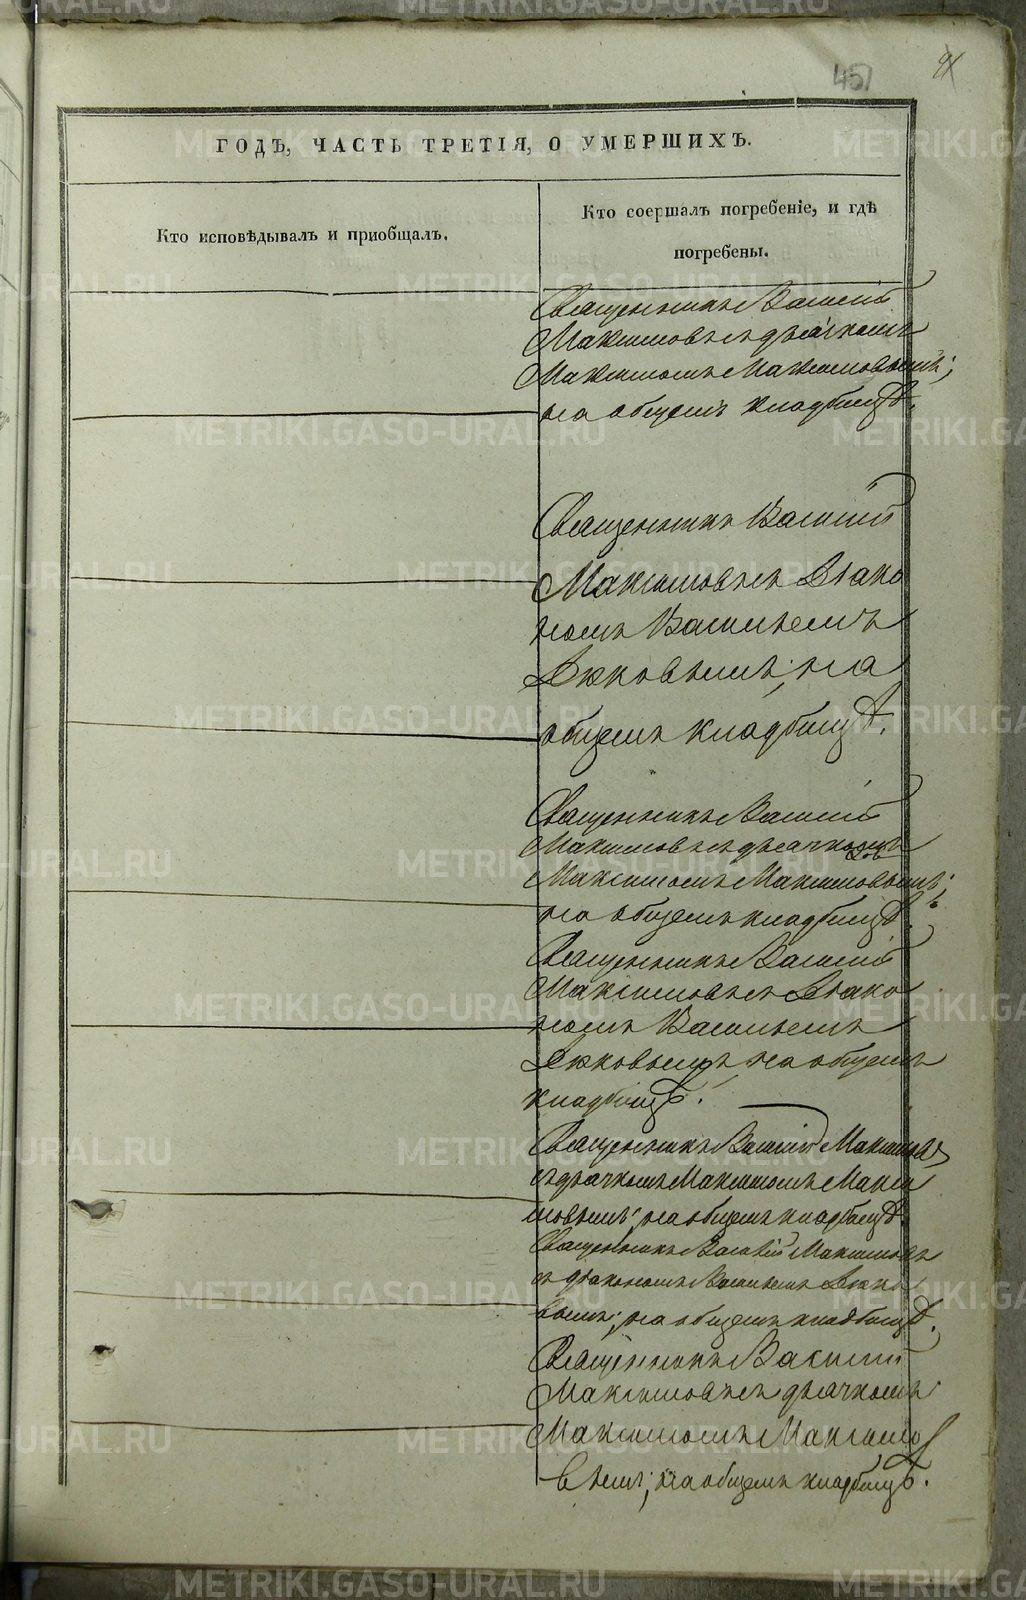 457
ГОДЪ, ЧАСТЬ ТРЕТІЯ, О УМЕРШИХЪ.
Кто исповѣдывалъ и приобщалъ.
Кто соершалъ погребеніе, и гдѣ
погребены.
Священникъ Василій
Максимовъ съ дьячкомъ
Максимомъ Максимовымъ;
на общемъ кладбищѣ.
Священникъ Василій
Максимовъ съ Діако
номъ Васильемъ
на
общемъ кладбищѣ.
Священникъ Василій
Максимовъ съ дьячкомъ
Максимомъ Максимовымъ;
на общемъ кладбищѣ.
Священникъ Василій
Максимовъ съ Діако
номъ Васильемъ
на общемъ
кладбищѣ.
Священникъ Василій Максимовъ
съ дьячкомъ Максимомъ Макси
мовымъ; на общемъ кладбищѣ.
Священникъ Василій Максимовъ
съ діакономъ Васильемъ
вымъ; на общемъ кладбищѣ.
Священникъ Василій
Максимовъ съ дьячкомъ
Максимомъ Максимо
вымъ; на общемъ кладбищѣ.
METRIKI.GASO-URAL.RU